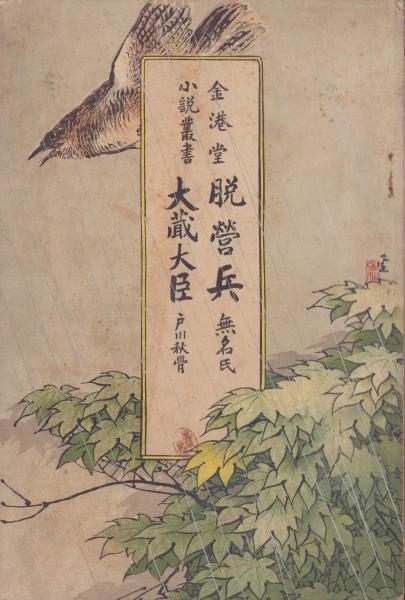 金港堂 脱營兵 無名氏
小説叢書 大蔵大臣 戸川秋骨